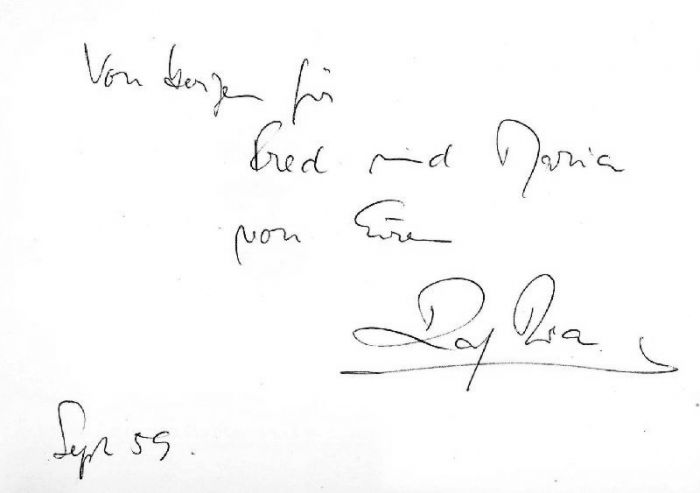 Von Herzen für
Fred und Maria
von Eurem
Sept 59.